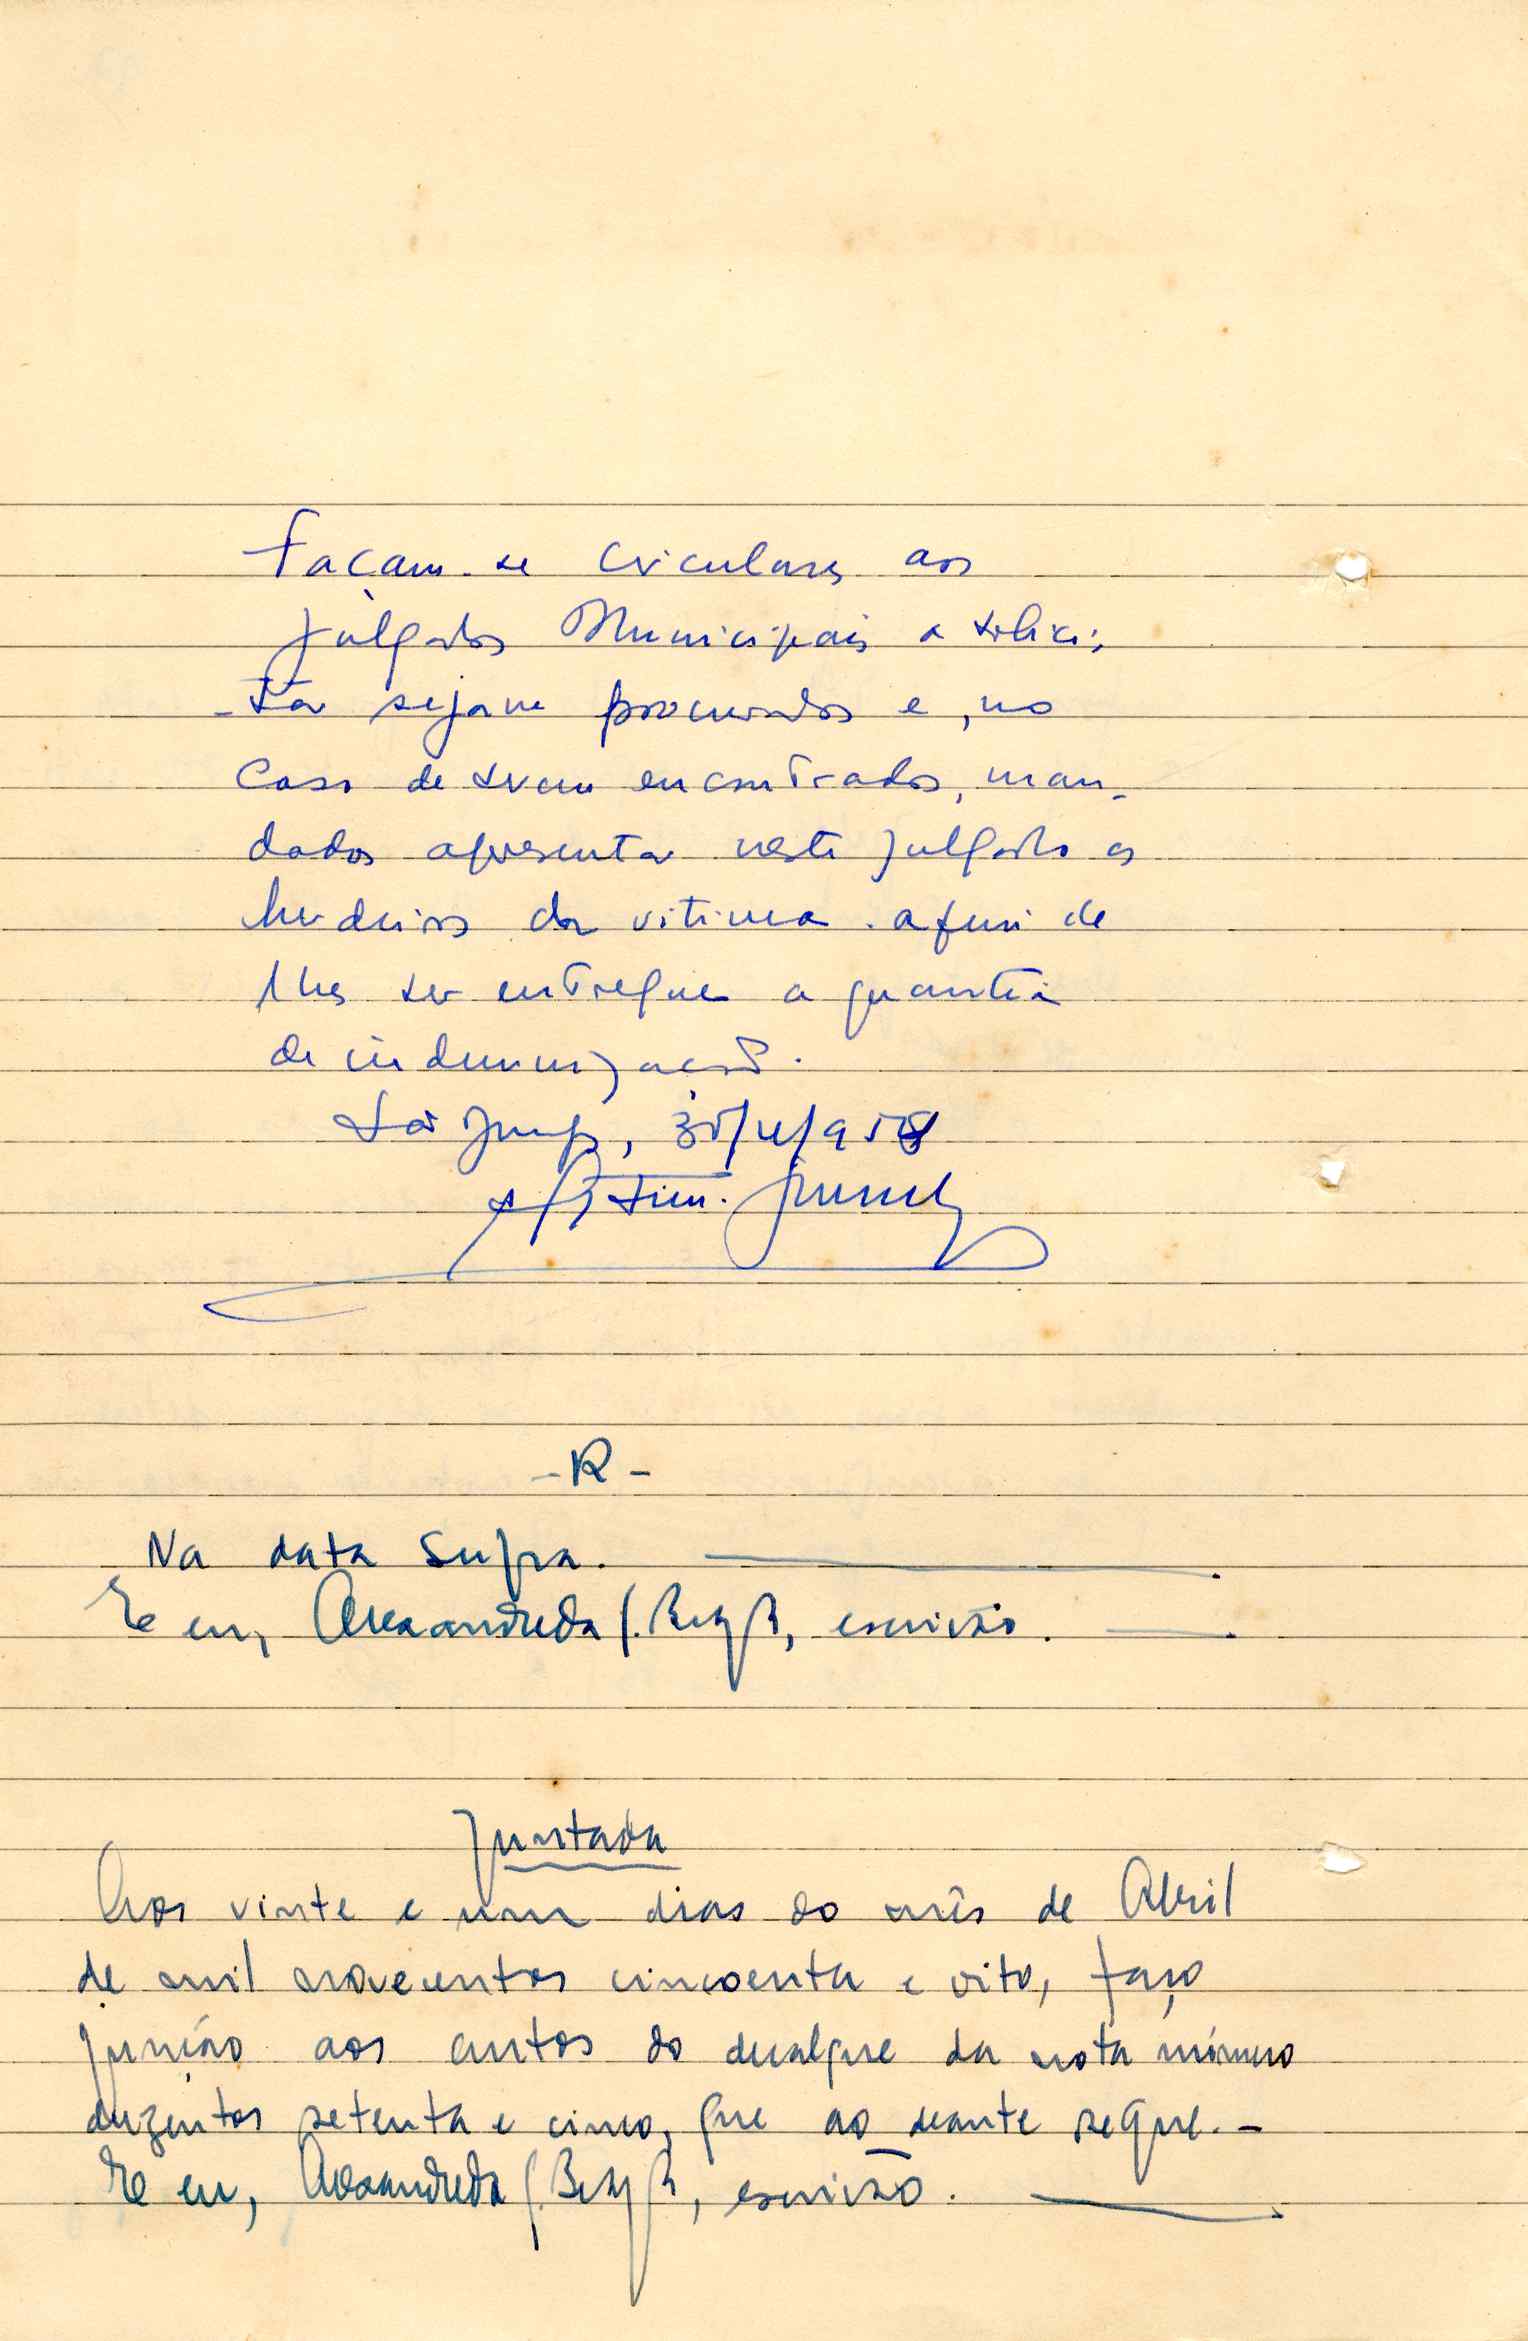 Façam-se circulares aos
Julgados Municipais a solici-
-tar sejam procurados e, no
caso de serem encontrados, man-
dados apresentar neste Julgado os
herdeiros da vitima. afim de
lhes ser entregue a quantia
de indemnização.
/958
-R-
Na data supra.
E eu, escrivão.
Juntada
Aos vinte e um dias do mês de Abril
de mil novecentos cincoenta e oito, faço
junção aos autos do dualgue da nota número
duzentos setenta e cinco, que ao deante segue.-
E eu, escrivão.